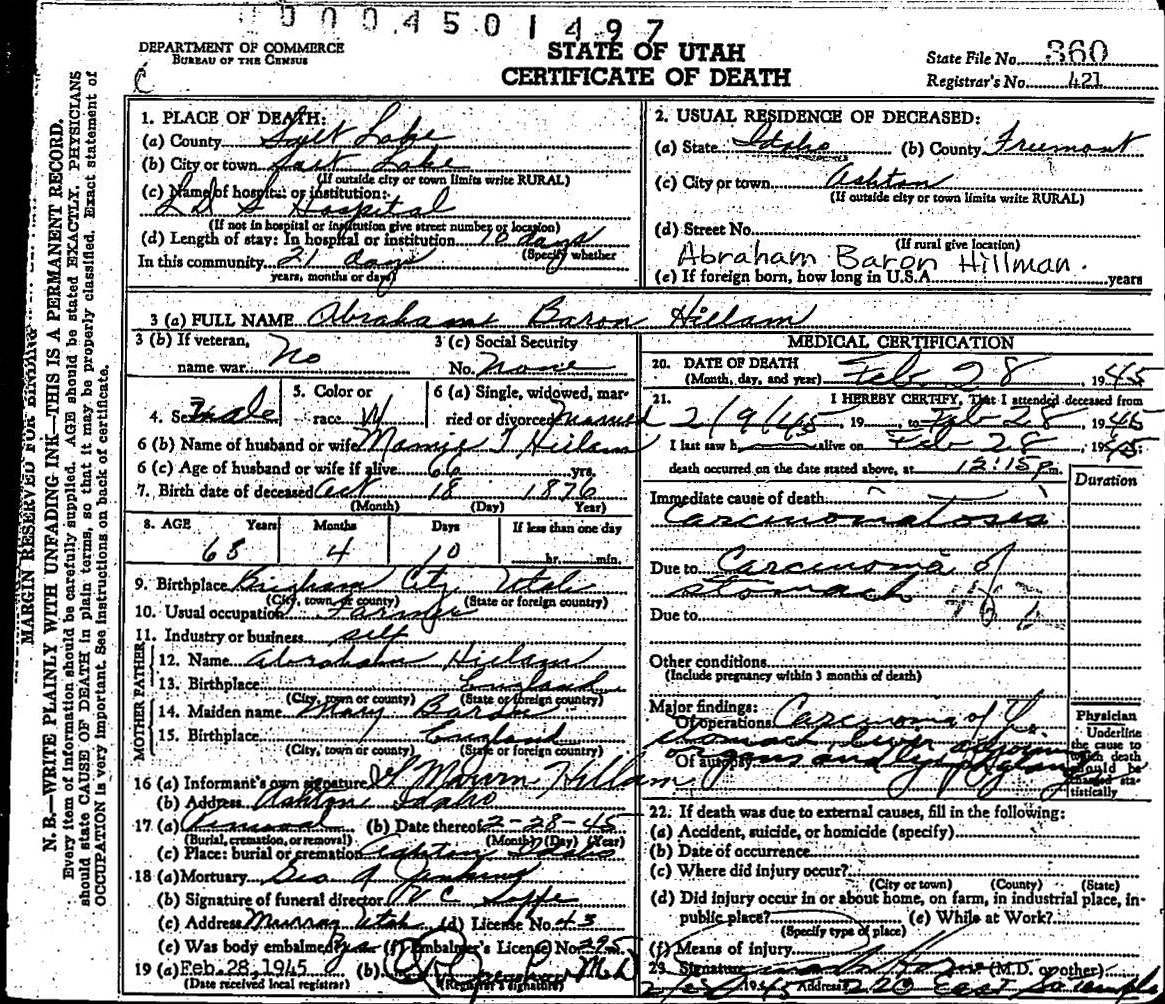 0004501497
DEPARTMENT OF COMMERCE
BUREAU OF THE CENSUS
C
STATE OF UTAH
CERTIFICATE OF DEATH
State File No. 360
Registrar's No. 421
MARGIN RESERVED FOR BINDING
N. B.—WRITE PLAINLY WITH UNFADING INK—THIS IS A PERMANENT RECORD.
Every item of information should be carefully supplied. AGE should be stated EXACTLY. PHYSICIANS
should state CAUSE OF DEATH in plain terms, so that it may be properly classified. Exact statement of
OCCUPATION is very important. See instructions on back of certificate.
1. PLACE OF DEATH:
(a) County Salt Lake
(b) City or town Salt Lake
(If outside city or town limits write RURAL)
(c) Name of hospital or institution:
L D S Hospital
(If not in hospital or institution give street number or location)
(d) Length of stay: In hospital or institution 10 days
(Specify whether
In this community 21 days
years, months or days)
2. USUAL RESIDENCE OF DECEASED:
(a) State Idaho (b) County Freemont
(c) City or town Ashton
(If outside city or town limits write RURAL)
(d) Street No.
(If rural give location)
Abraham Baron Hillman.
(e) If foreign born, how long in U.S.A. years
3 (a) FULL NAME Abraham Baron Hillam
3 (b) If veteran,
name war No
3 (c) Social Security
No. None
4. Sex Male
5. Color or
race W
6 (a) Single, widowed, mar-
ried or divorced Married
6 (b) Name of husband or wife Mamie T Hillam
6 (c) Age of husband or wife if alive 66 yrs.
7. Birth date of deceased Oct 18 1876
(Month) (Day) Year)
8. AGE Years Months Days If less than one day
68 4 10 hr. min.
9. Birthplace Brigham City Utah
(City, town, or county) (State or foreign country)
10. Usual occupation Farmer
11. Industry or business self
FATHER
12. Name Abraham Hillam
13. Birthplace England
(City, town or county) (State or foreign country)
MOTHER
14. Maiden name Mary Baron
15. Birthplace England
(City, town, or county) (State or foreign country)
16 (a) Informant's own signature Hillam
(b) Address Ashton Idaho
17 (a) Removal (b) Date thereof 2-28-45
(Burial, cremation, or removal) (Month) (Day) (Year)
(c) Place: burial or cremation Ashton Idaho
18 (a) Mortuary Geo A
(b) Signature of funeral director
(c) Address Murray Utah (d) License No. 43
(e) Was body embalmed? yes (f) Embalmer's License No. 395
19 (a) Feb. 28, 1945 (b) M.D.
(Date received local registrar) (Registrar's signature)
MEDICAL CERTIFICATION
20. DATE OF DEATH
(Month, day, and year) Feb 28, 1945
21. I HEREBY CERTIFY, That I attended deceased from
2/9/45, 19 to Feb 28, 1945
I last saw h alive on Feb 28, 1945
death occurred on the date stated above, at 12:15 p.m.
Duration
Immediate cause of death
Carcinomatosis
Due to Carcinoma of
stomach
Due to
Other conditions
(Include pregnancy within 3 months of death)
Major findings:
Of operations Carcinoma of
stomach, liver
Of autopsy organs and lymph glands
Physician
Underline
the cause to
which death
should be
charged sta-
tistically
22. If death was due to external causes, fill in the following:
(a) Accident, suicide, or homicide (specify)
(b) Date of occurrence
(c) Where did injury occur?
(City or town) (County) (State)
(d) Did injury occur in or about home, on farm, in industrial place, in-
public place? (e) While at Work?
(Specify type of place)
(f) Means of injury
23. Signature (M.D. or other)
1945 Address 220 East So. Temple